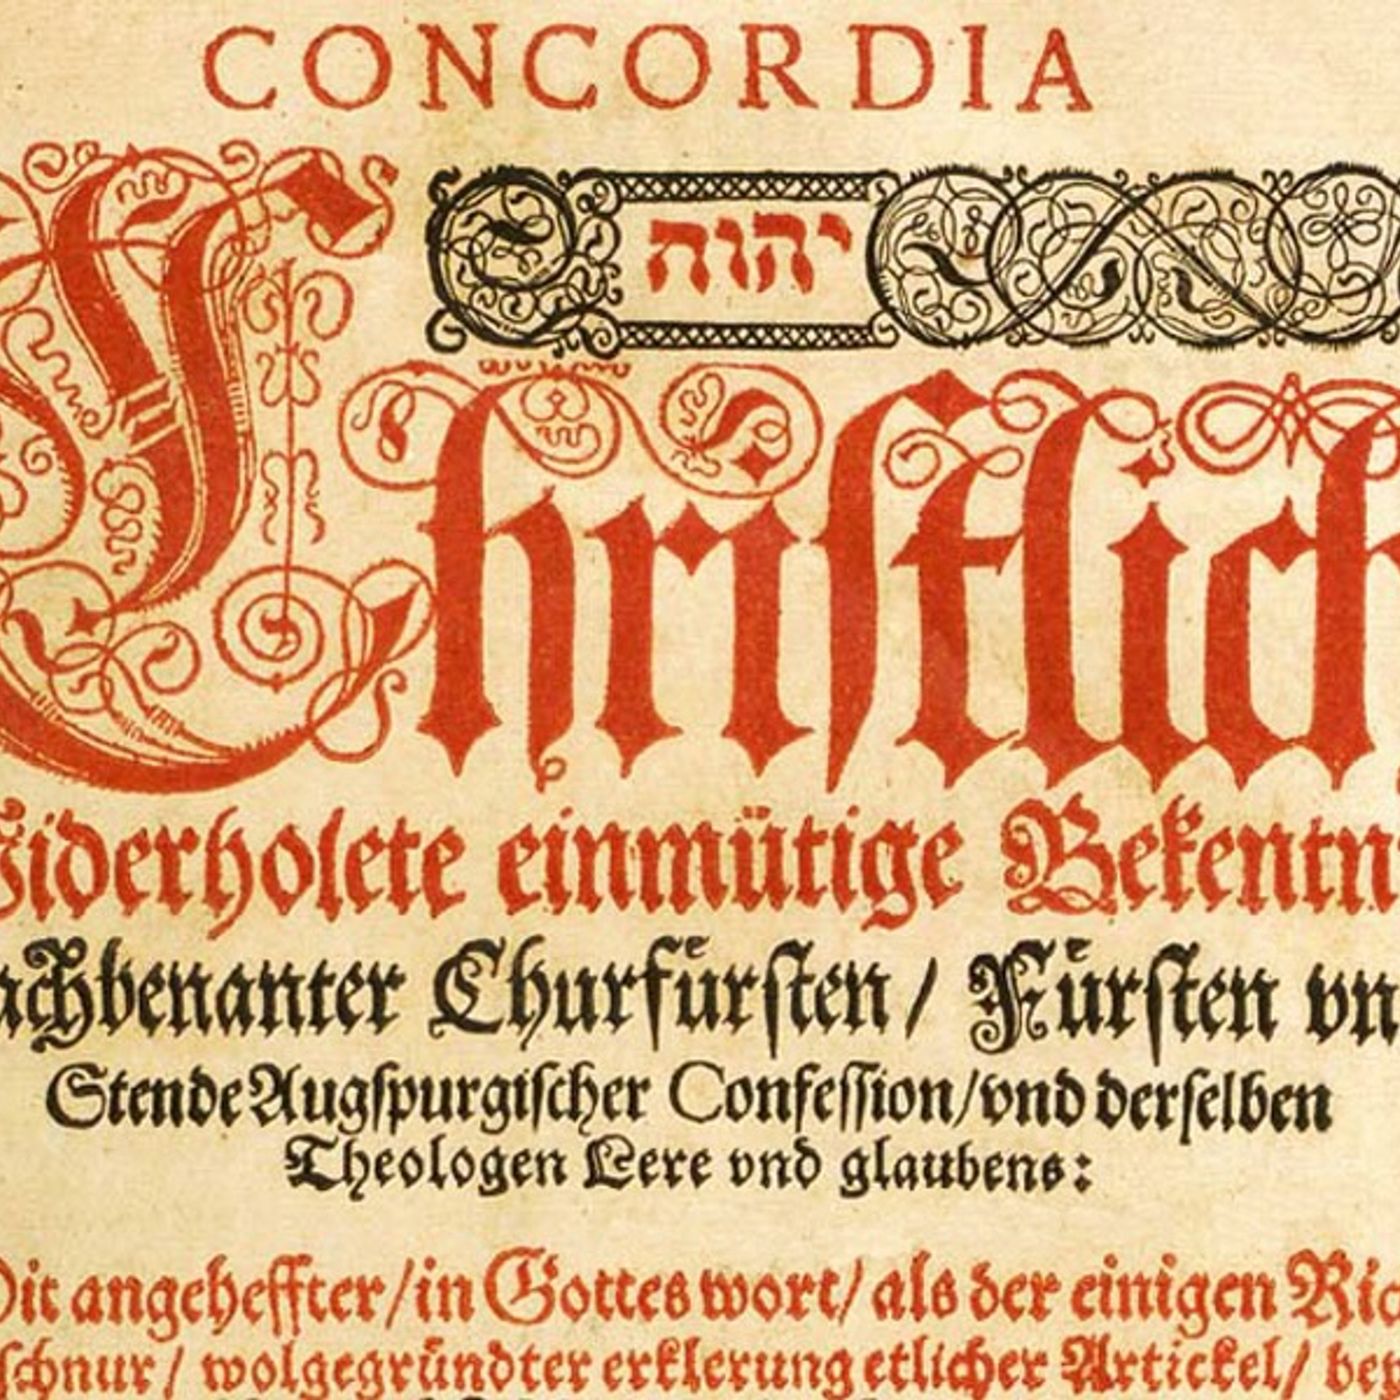 CONCORDIA
יהוה
Chriſtlich
Widerholete einmütige Bekentn
achbenanter Churfürſten / Fürſten vn
Stende Augſpurgiſcher Confeſſion/vnd derſelben
Theologen Lere vnd glaubens:
Mit angeheffter/in Gottes wort/ als der einigen Ric
ſchnur/ wolgegründter erklerung etlicher Artickel/ bey